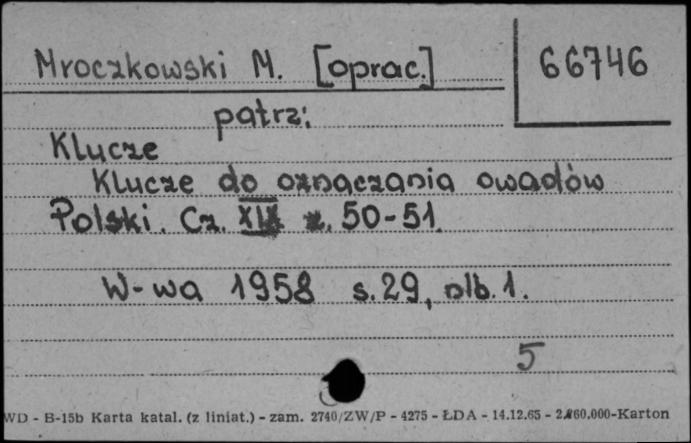 Mroczkowski M. [oprac.]
66746
patrz:
Klucze
Klucze do oznaczania owadów
Polski. Cz. XIX z. 50-51.
W-wa 1958 s. 29, nlb. 1.
5
WD - B-15b Karta katal. (z liniat.) - zam. 2740/ZW/P - 4275 - ŁDA - 14.12.65 - 2.260.000-Karton